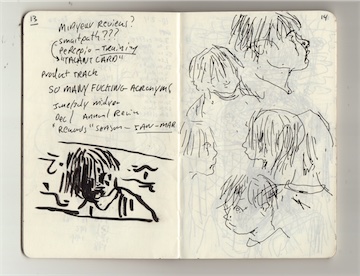 13
14
MIDYEAR REVIEWS?
SMARTPATH???
PERCEPIO - TRAINING
"TALANT CARD"
PRODUCT TRACK
SO MANY FUCKING ACRONYMS
JUNE/JULY MIDYEAR
DEC/ ANNUAL REVIEW
"REWARDS" SEASON - JAN - MAR